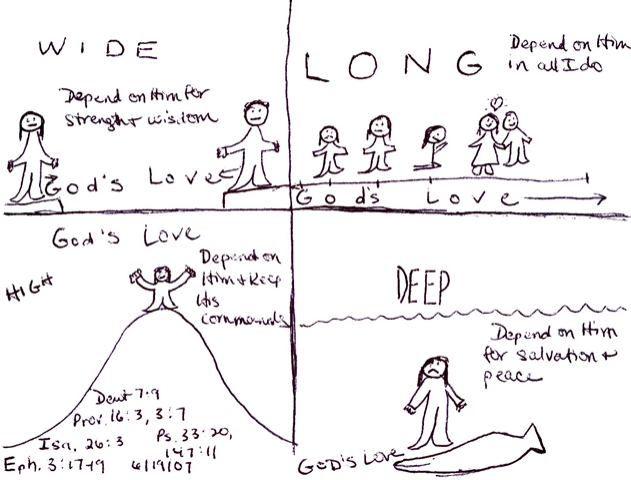 WIDE
Depend on Him for
strength + wisdom
God's Love
LONG
Depend on Him
in all I do
God's Love
God's Love
HIGH
Depend on
Him + Keep
His
commands
Deut 7:9
Prov. 16:3, 3:7
Isa. 26:3
Ps. 33:20,
147:11
Eph. 3:17-19 6/19/07
DEEP
Depend on Him
for salvation +
peace
GOD'S LOVE